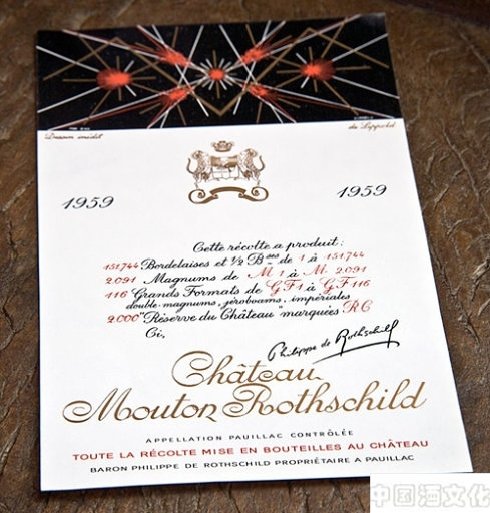 Dessin inédit
de Lippold
1959
1959
Cette récolte a produit:
151.744 Bordelaises et ½ Bses de 1 à 151.744
2.091 Magnums de M 1 à M 2.091
116 Grands Formats de GF 1 à GF 116
double-magnums, jéroboams, impériales
2000 "Réserve du Château" marquées RC
Ci,
Philippe de Rothschild
Château
Mouton Rothschild
APPELLATION PAUILLAC CONTRÔLÉE
TOUTE LA RÉCOLTE MISE EN BOUTEILLES AU CHÂTEAU
BARON PHILIPPE DE ROTHSCHILD PROPRIÉTAIRE A PAUILLAC
中国酒文化